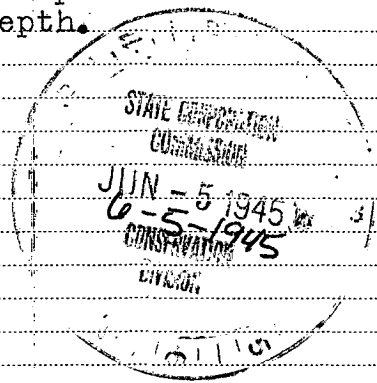 epth.
STATE CORPORATION
COMMISSION
JUN - 5 1945
6-5-1945
CONSERVATION
DIVISION